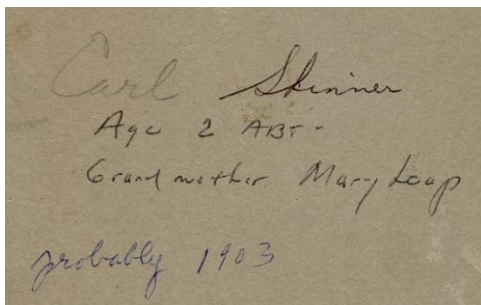 Carl Skinner
Age 2 ABT-
Grand mother Mary Loap
probably 1903